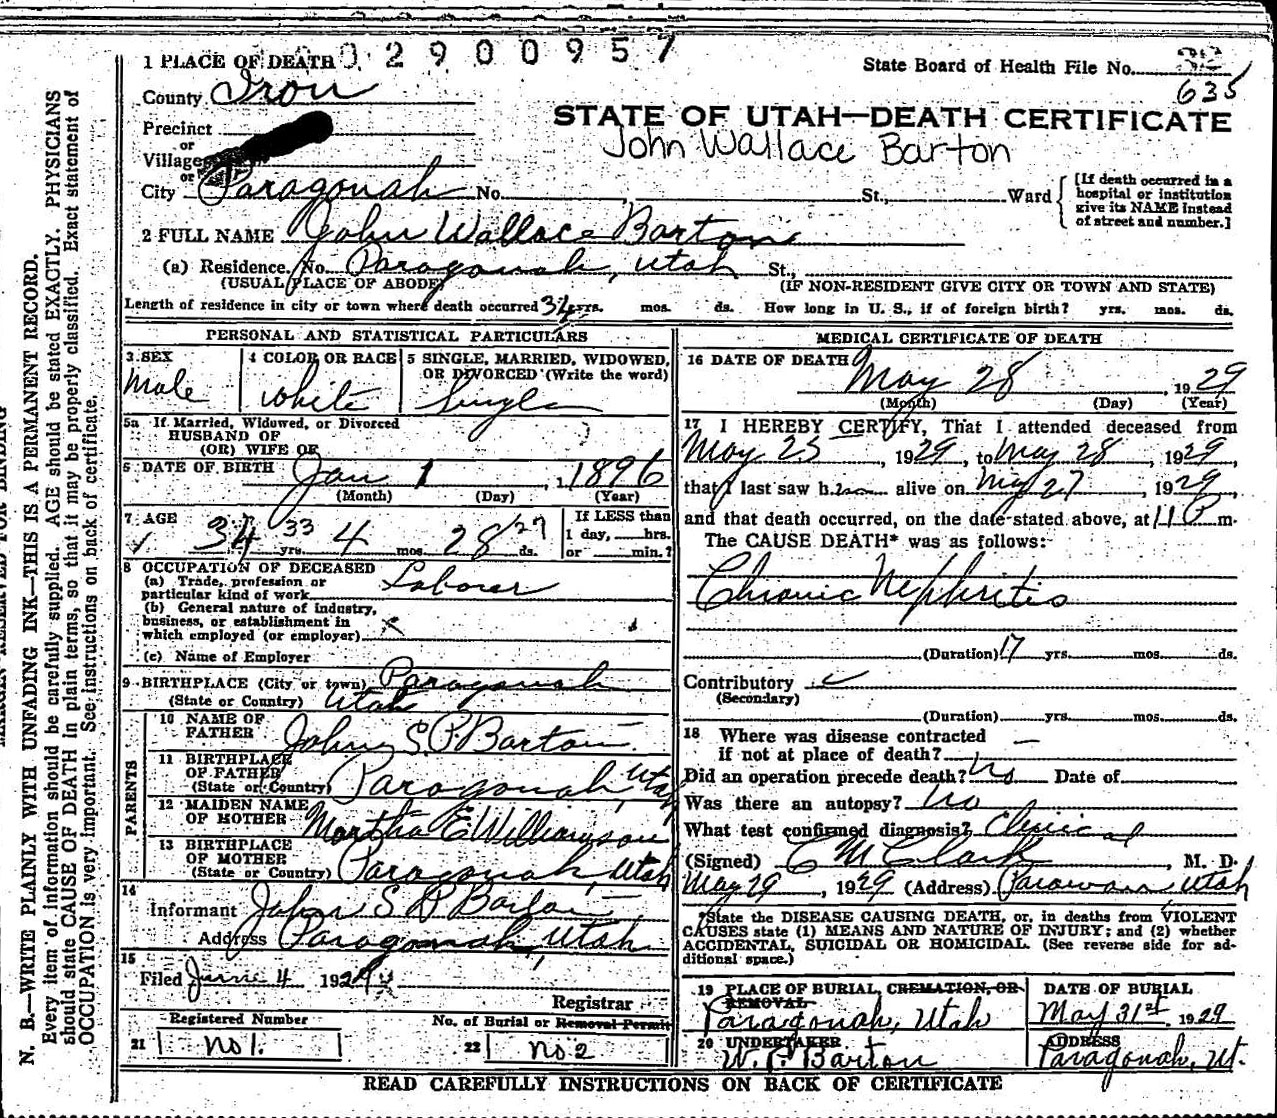 0 2 9 0 0 9 5 7
1 PLACE OF DEATH
State Board of Health File No. 32
635
County Iron
STATE OF UTAH—DEATH CERTIFICATE
John Wallace Barton
Precinct
or
Village
or
City Paragonah No. St., Ward
[If death occurred in a
hospital or institution
give its NAME instead
of street and number.]
2 FULL NAME John Wallace Barton
(a) Residence. No. Paragonah, Utah St.,
(USUAL PLACE OF ABODE) (IF NON-RESIDENT GIVE CITY OR TOWN AND STATE)
Length of residence in city or town where death occurred 34 yrs. mos. ds. How long in U. S., if of foreign birth? yrs. mos. ds.
PERSONAL AND STATISTICAL PARTICULARS
3 SEX
Male
4 COLOR OR RACE
White
5 SINGLE, MARRIED, WIDOWED,
OR DIVORCED (Write the word)
Single
5a If Married, Widowed, or Divorced
HUSBAND OF
(OR) WIFE OF
6 DATE OF BIRTH Jan 1 1896
(Month) (Day) (Year)
7 AGE
34 33 yrs. 4 mos. 28 27 ds.
If LESS than
1 day, hrs.
or min.?
8 OCCUPATION OF DECEASED
(a) Trade, profession or
particular kind of work Laborer
(b) General nature of industry,
business, or establishment in
which employed (or employer) x
(c) Name of Employer
9 BIRTHPLACE (City or town) Paragonah
(State or Country) Utah
PARENTS
10 NAME OF
FATHER John S. P. Barton
11 BIRTHPLACE
OF FATHER
(State or Country) Paragonah, Utah
12 MAIDEN NAME
OF MOTHER Martha E Williamson
13 BIRTHPLACE
OF MOTHER
(State or Country) Paragonah, Utah
14
Informant John S P Barton
Address Paragonah, Utah
15
Filed June 4 1929
Registrar
Registered Number
21 No 1.
No. of Burial or Removal Permit
22 No 2
MEDICAL CERTIFICATE OF DEATH
16 DATE OF DEATH
May 28, 1929
(Month) (Day) (Year)
17 I HEREBY CERTIFY, That I attended deceased from
May 25, 1929, to May 28, 1929,
that I last saw him alive on May 27, 1929,
and that death occurred, on the date stated above, at 11 P m.
The CAUSE DEATH* was as follows:
Chronic Nephritis
(Duration) 17 yrs. mos. ds.
Contributory
(Secondary)
(Duration) yrs. mos. ds.
18 Where was disease contracted
if not at place of death? —
Did an operation precede death? No Date of
Was there an autopsy? No
What test confirmed diagnosis? Clinical
(Signed) C M Clark, M. D.
May 29, 1929 (Address) Parowan Utah
*State the DISEASE CAUSING DEATH, or, in deaths from VIOLENT
CAUSES state (1) MEANS AND NATURE OF INJURY; and (2) whether
ACCIDENTAL, SUICIDAL OR HOMICIDAL. (See reverse side for ad-
ditional space.)
19 PLACE OF BURIAL, CREMATION, OR
REMOVAL
Paragonah, Utah
DATE OF BURIAL
May 31st, 1929
20 UNDERTAKER
W. P. Barton
ADDRESS
Paragonah, Ut.
READ CAREFULLY INSTRUCTIONS ON BACK OF CERTIFICATE
MARGIN RESERVED FOR BINDING
N. B.—WRITE PLAINLY WITH UNFADING INK—THIS IS A PERMANENT RECORD.
Every item of information should be carefully supplied. AGE should be stated EXACTLY. PHYSICIANS
should state CAUSE OF DEATH in plain terms, so that it may be properly classified. Exact statement of
OCCUPATION is very important. See instructions on back of certificate.